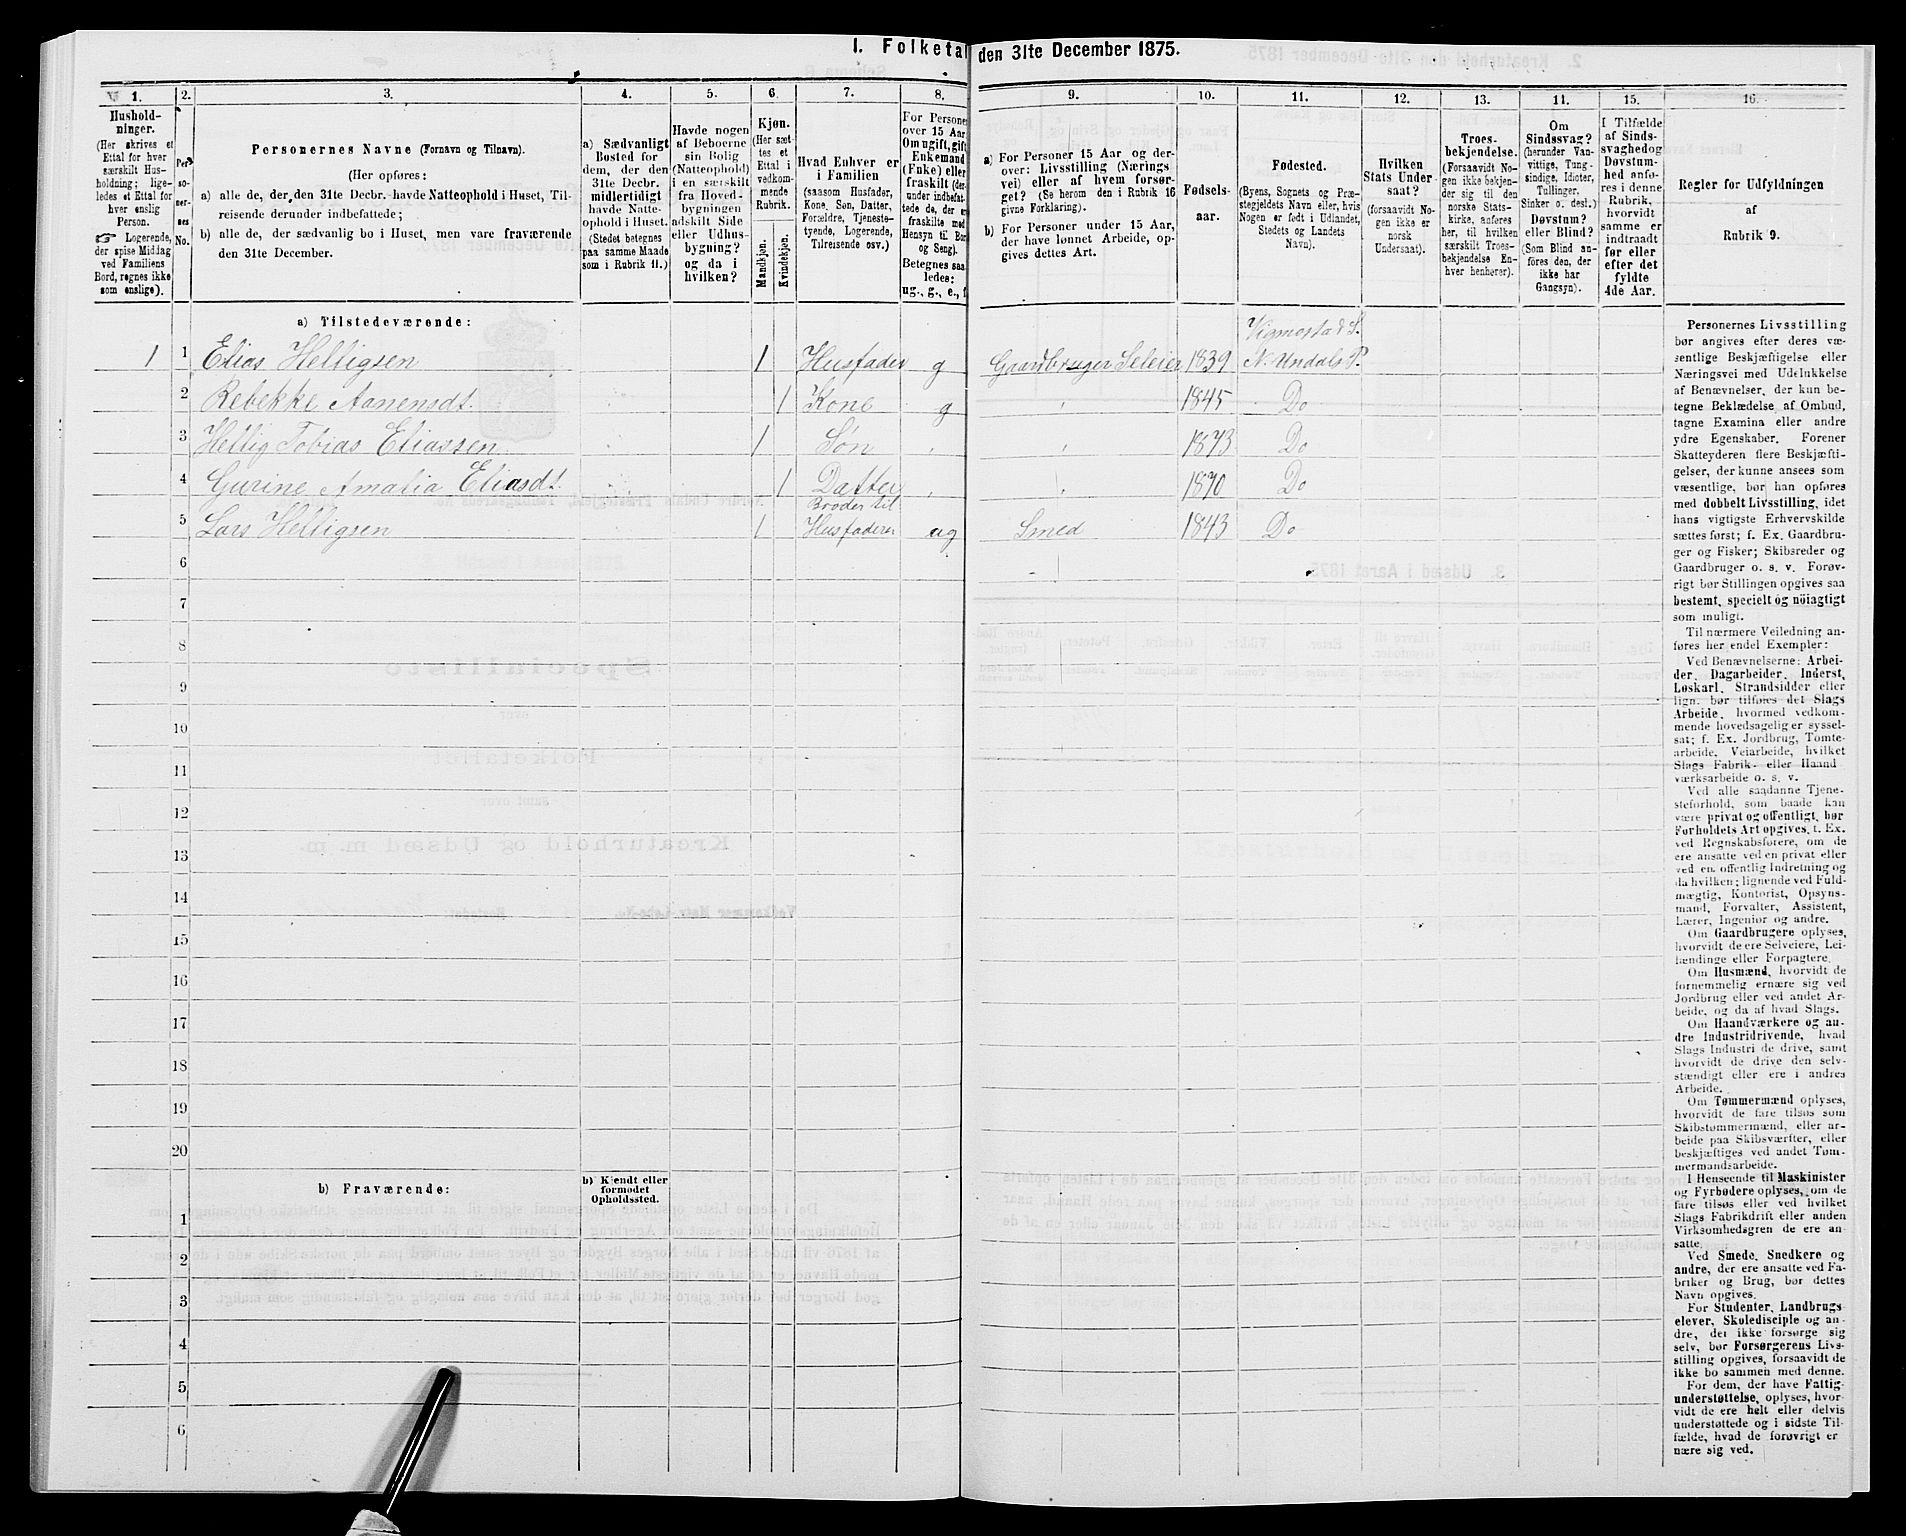 I. Folketal den 31te December 1875.
1. 2. 3. 4. 5. 6. 7. 8. 9. 10. 11. 12. 13. 14. 15. 16.
Hushold-
ninger.
(Her skrives et
Ettal for hver
særskilt Hus-
holdning; lige-
ledes et Ettal for
hver enslig
Person.
Logerende,
der spise Middag
ved Familiens
Bord, regnes ikke
som enslige).
Per-
so-
ner-
nes
No.
Personernes Navne (Fornavn og Tilnavn).
(Her opføres:
a) alle de, der, den 31te Decbr. havde Natteophold i Huset, Til-
reisende derunder indbefattede;
b) alle de, der sædvanlig bo i Huset, men vare fraværende
den 31te December.
a) Sædvanligt
Bosted for
dem, der den
31te Decbr.
midlertidigt
havde Natte-
ophold i Huset.
(Stedet betegnes
paa samme Maade
som i Rubrik 11.)
Havde nogen
af Beboerne
sin Bolig
(Natteophold)
i en særskilt
fra Hoved-
bygningen
adskilt Side
eller Udhus-
bygning?
og da i
hvilken?
Kjøn.
(Her sæt-
tes et
Ettal i
vedkom-
mende
Rubrik.
Mandkjøn.
Kvindekjøn.
Hvad Enhver er
i Familien
(saasom Husfader,
Kone, Søn, Datter,
Forældre, Tjeneste-
tyende, Logerende,
Tilreisende osv.)
For Personer
over 15 Aar
Om ugift, gift
Enkemand
(Enke) eller
fraskilt (der-
under indbefat-
tede de, der er
fraskilte med
Hensyn til Bord
og Seng).
Betegnes saa-
ledes:
ug., g., e., f.
a) For Personer 15 Aar og der-
over: Livsstilling (Nærings-
vei) eller af hvem forsør-
get? (Se herom den i Rubrik 16
givne Forklaring).
b) For Personer under 15 Aar,
der have lønnet Arbeide, op-
gives dettes Art.
Fødsels-
aar.
Fødested.
(Byens, Sognets og Præ-
stegjeldets Navn eller, hvis
Nogen er født i Udlandet,
Stedets og Landets
Navn).
Hvilken
Stats Under-
saat?
(forsaavidt No-
gen ikke er
norsk
Undersaat).
Troes-
bekjendelse.
(Forsaavidt No-
gen ikke bekjen-
der sig til den
norske Stats-
kirke, anføres
her, til hvilken
særskilt Troes-
bekjendelse En-
hver henhører).
Om
Sindssvag?
(herunder Van-
vittige, Tung-
sindige, Idioter,
Tullinger,
Sinker o. desl.)
Døvstum?
eller Blind?
(Som Blind an-
føres den, der
ikke har
Gangsyn).
I Tilfælde
af Sinds-
svaghed og
Døvstum-
hed anfø-
res i denne
Rubrik,
hvorvidt
samme er
indtraadt
før eller
efter det
fyldte
4de Aar.
Regler for Udfyldningen
af
Rubrik 9.
a) Tilstedeværende:
Vigmostad S.
1 1 Elias Helligsen 1 Husfader g Gaardbruger Seleier 1839 N. Undals P.
2 Rebekke Aanensdt. 1 Kone g 1845 Do
3 Hellig Tobias Eliassen 1 Søn 1873 Do
4 Gurine Amalia Eliasdt. 1 Datter 1870 Do
Broder til
5 Lars Helligsen 1 Husfaderen ug Smed 1843 Do
6
7
8
9
10
11
12
13
14
15
16
17
18
19
20
b) Fraværende:
b) Kjendt eller
formodet
Opholdssted.
1
2
3
4
5
6
Personernes Livsstilling
bør angives efter deres væ-
sentlige Beskjæftigelse eller
Næringsvei med Udelukkelse
af Benævnelser, der kun be-
tegne Beklædelse af Ombud,
tagne Examina eller andre
ydre Egenskaber. Forener
Skatteyderen flere Beskjæfti-
gelser, der kunne ansees som
væsentlige, bør han opføres
med dobbelt Livsstilling, idet
hans vigtigste Erhvervskilde
sættes først; f. Ex. Gaardbru-
ger og Fisker; Skibsreder og
Gaardbruger o. s. v. Forøv-
rigt bør Stillingen opgives saa
bestemt, specielt og nöiagtigt
som muligt.
Til nærmere Veiledning an-
føres her endel Exempler:
Ved Benævnelserne: Arbei-
der, Dagarbeider, Inderst,
Løskarl, Strandsidder eller
lign. bør tilføres det Slags
Arbeide, hvormed vedkom-
mende hovedsagelig er syssel-
sat; f. Ex. Jordbrug, Tomte-
arbeide, Veiarbeide, hvilket
Slags Fabrik- eller Haand-
værksarbeide o. s. v.
Ved alle saadanne Tjene-
steforhold, som baade kan
være privat og offentligt, bør
Forholdets Art opgives, t. Ex.
ved Regnskabsførere, om de
ere ansatte ved en privat eller
ved en offentlig Indretning og
da hvilken; lignende ved Fuld-
mægtig, Kontorist, Opsyns-
mand, Forvalter, Assistent,
Lærer, Ingeniør og andre.
Om Gaardbrugere oplyses,
hvorvidt de ere Selveiere, Lei-
lændinge eller Forpagtere.
Om Husmænd, hvorvidt de
fornemmelig ernære sig ved
Jordbrug eller ved andet Ar-
beide, og da af hvad Slags.
Om Haandværkere og an-
dre Industridrivende, hvad
Slags Industri de drive, samt
hvorvidt de drive den selv-
stændigt eller ere i andres
Arbeide.
Om Tømmermænd oplyses,
hvorvidt de fare tilsøs som
Skibstømmermænd, eller ar-
beide paa Skibsværfter, eller
beskjæftiges ved andet Tøm-
mermandsarbeide.
I Henseende til Maskinister
og Fyrbødere oplyses, om de
fare tilsøs eller ved hvilket
Slags Fabrikdrift eller anden
Virksomhedsgren de ere an-
satte.
Ved Smede, Snedkere og
andre, der ere ansatte ved Fa-
briker og Brug, bør dettes
Navn opgives.
For Studenter, Landbrugs-
elever, Skoledisciple og an-
dre, der ikke forsørge sig
selv, bør Forsørgerens Livs-
stilling opgives, forsaavidt de
ikke bo sammen med denne.
For dem, der have Fattig-
understøttelse, oplyses, hvor-
vidt de ere helt eller delvis
understøttede og i sidste Til-
fælde, hvad de forøvrigt er-
nære sig ved.